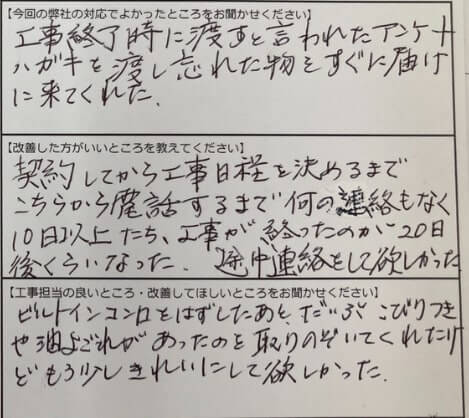 【今回の弊社の対応でよかったところをお聞かせください】
工事終了時に渡すと言われたアンケート
ハガキを渡し忘れた物をすぐに届け
に来てくれた.
【改善した方がいいところを教えてください】
契約してから工事日程を決めるまで
こちらから電話するまで何の連絡もなく
10日以上たち、工事が終ったのが20日
後くらいなった. 途中連絡をして欲しかった
【工事担当の良いところ・改善してほしいところをお聞かせください】
ビルトインコンロをはずしたあと、だいぶこびりつき
や油よごれがあったのを取りのぞいてくれたけ
どもう少しきれいにして欲しかった.